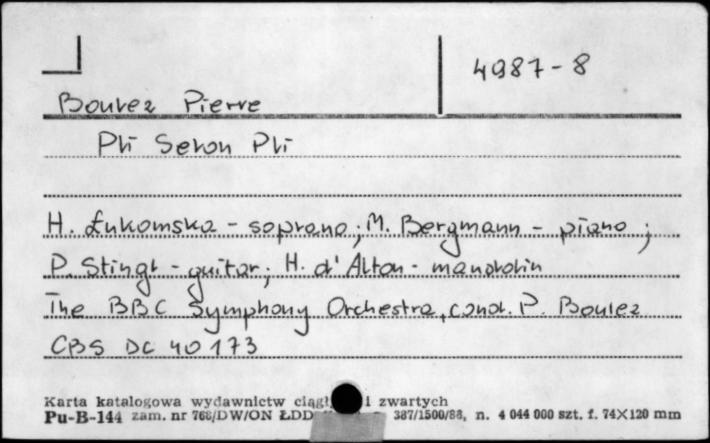 4987-8
Boulez Pierre
Pli Selon Pli
H. Łukomska - soprano; M. Bergmann - piano;
P. Stingl - guitar; H. d'Alton - mandolin
The BBC Symphony Orchestra, cond. P. Boulez
CBS DC 40 173
Karta katalogowa wydawnictw ciągł i zwartych
Pu-B-144 zam. nr 766/DW/ON ŁDD 387/1500/88, n. 4 044 000 szt. f. 74×120 mm